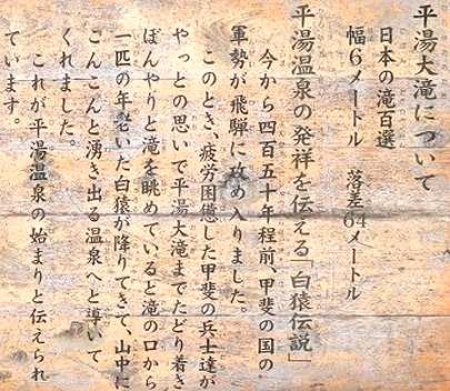 平湯大滝について
日本の滝百選
幅6メートル 落差64メートル
平湯温泉の発祥を伝える「白猿伝説」
今から四百五十年程前、甲斐の国の
軍勢が飛騨に攻め入りました。
このとき、疲労困憊した甲斐の兵士達が
やっとの思いで平湯大滝までたどり着き
ぼんやりと滝を眺めていると滝の口から
一匹の年老いた白猿が降りてきて、山中に
こんこんと湧き出る温泉へと導いて
くれました。
これが平湯温泉の始まりと伝えられ
ています。